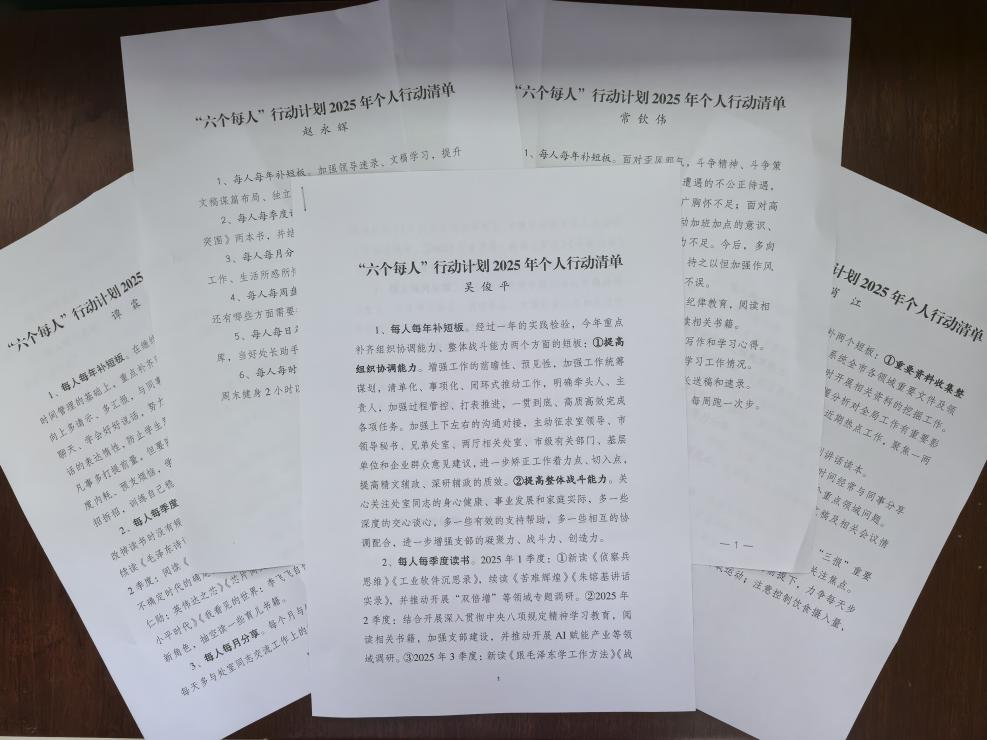 “六个每人”行动计划 2025 年个人行动清单
赵 永 辉
1、每人每年补短板。加强领导速录、文稿学习，提升
文稿谋篇布局、独立
2、每人每季度
突围》两本书，并结
3、每人每月分
工作、生活所感所
4、每人每周
还有哪些方面需要
5、每人每日
库，当好处长助手
6、每人每时
周末健身 2 小时以
“六个每人”行动计划 2025 年个人行动清单
常 钦 伟
1、每人每年补短板。面对歪风邪气，斗争精神、斗争策
遭遇的不公正待遇，
广胸怀不足；面对高
动加班加点的意识、
力不足。今后，多向
持之以恒加强作风
不误。
纪律教育，阅读相
读相关书籍。
写作和学习心得。
学习工作情况。
长送稿和速录。
每周跑一次步。
— 1 —
“六个每人”行动计划 2025
谭 霖
1、每人每年补短板。在继续
时间管理的基础上，重点补齐
向上多请示、多汇报，与同事
聊天、学会好好说话，努力
话的表达惰性，防止学生
凡事多打提前量，但要
度内耗、预支烦恼，学
扣折招，训练自己
2、每人每季度
改掉读书时没有规
续读《毛泽东诗
2 季度：阅读《
不确定时代的确定
仁勋：英伟达之芯》《芯片
小平时代》《我看见的世界：李飞飞自
新角色，抽空读一些育儿书籍。
3、每人每月分享。每个月与
每天多与处室同志交流工作上的
计划 2025 年个人行动清单
肖 江
补两个短板：①重要资料收集整
系统全市各领域重要文件及领
时开展相关资料的挖掘工作。
分析对全局工作有重要影
近期热点工作，聚焦一两
讲话读本。
时间经常与同事分享
个重点领域问题。
文稿及相关会议情
“三报”重要
关注焦点。
提下，力争每天步
运动；注意控制饮食摄入量，
“六个每人”行动计划 2025 年个人行动清单
吴 俊 平
1、每人每年补短板。经过一年的实践检验，今年重点
补齐组织协调能力、整体战斗能力两个方面的短板：①提高
组织协调能力。增强工作的前瞻性、预见性，加强工作统筹
谋划，清单化、事项化、闭环式推动工作，明确牵头人、主
责人，加强过程管控、打表推进，一贯到底、高质高效完成
各项任务。加强上下左右的沟通对接，主动征求室领导、市
领导秘书、兄弟处室、两厅相关处室、市级有关部门、基层
单位和企业群众意见建议，进一步矫正工作着力点、切入点，
提高精文辅政、深研辅政的质效。②提高整体战斗能力。关
心关注处室同志的身心健康、事业发展和家庭实际，多一些
深度的交心谈心，多一些有效的支持帮助，多一些相互的协
调配合，进一步增强支部的凝聚力、战斗力、创造力。
2、每人每季度读书。2025 年 1 季度：①新读《侦察兵
思维》《工业软件沉思录》，续读《苦难辉煌》《朱镕基讲话
实录》，并推动开展“双倍增”等领域专题调研。②2025 年
2 季度：结合开展深入贯彻中央八项规定精神学习教育，阅
读相关书籍，加强支部建设，并推动开展 AI 赋能产业等领
域调研。③2025 年 3 季度：新读《跟毛泽东学工作方法》《战
1